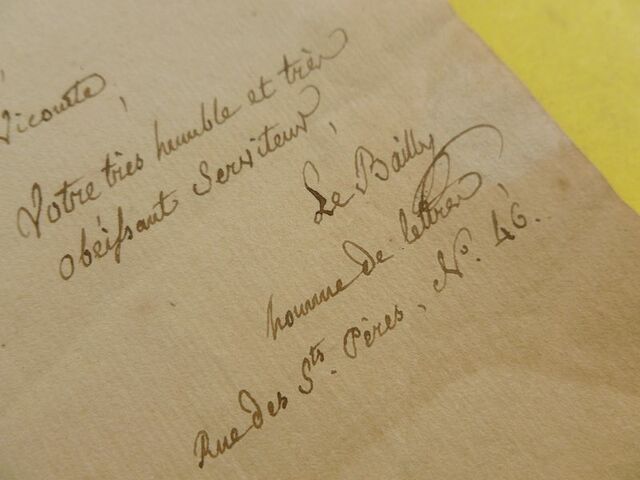 Vicomte,
Votre très humble et très
obéissant Serviteur,
Le Bailly
homme de lettres,
Rue des Sts. Pères, No. 46.